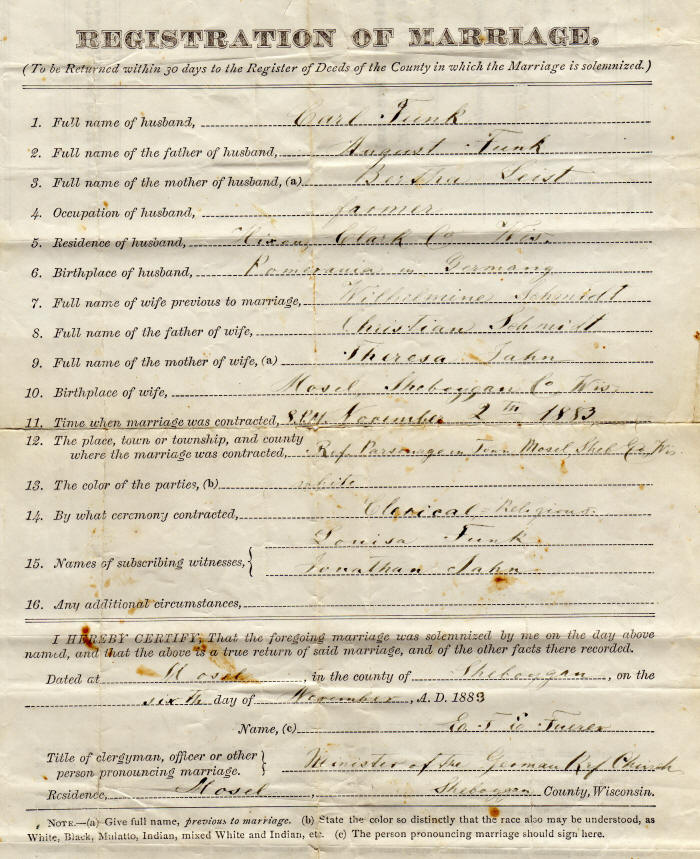 REGISTRATION OF MARRIAGE.
(To be Returned within 30 days to the Register of Deeds of the County in which the Marriage is solemnized.)
1. Full name of husband, Carl Funk
2. Full name of the father of husband, August Funk
3. Full name of the mother of husband, (a) Bertha Leist
4. Occupation of husband, farmer
5. Residence of husband, Hixon, Clark Co Wis.
6. Birthplace of husband, Pomerania in Germany
7. Full name of wife previous to marriage, Wilhelmine Schmidt
8. Full name of the father of wife, Christian Schmidt
9. Full name of the mother of wife, (a) Theresa Jahn
10. Birthplace of wife, Mosel, Sheboygan Co, Wis.
11. Time when marriage was contracted, 8 P.M. November 2th 1883
12. The place, town or township, and county
where the marriage was contracted, Ref. Parsonage in Town Mosel, Sheb. Co, Wis.
13. The color of the parties, (b) white
14. By what ceremony contracted, Clerical-Religious.
Louisa Funk
15. Names of subscribing witnesses, Jonathan Jahn
16. Any additional circumstances,
I HEREBY CERTIFY, That the foregoing marriage was solemnized by me on the day above
named, and that the above is a true return of said marriage, and of the other facts there recorded.
Dated at Mosel, in the county of Sheboygan, on the
sixth day of November, A. D. 1883
Name, (c)
Title of clergyman, officer or other
person pronouncing marriage. Minister of the German Ref Church
Residence, Mosel, Sheboygan County, Wisconsin.
NOTE.—(a) Give full name, previous to marriage. (b) State the color so distinctly that the race also may be understood, as
White, Black, Mulatto, Indian, mixed White and Indian, etc. (c) The person pronouncing marriage should sign here.